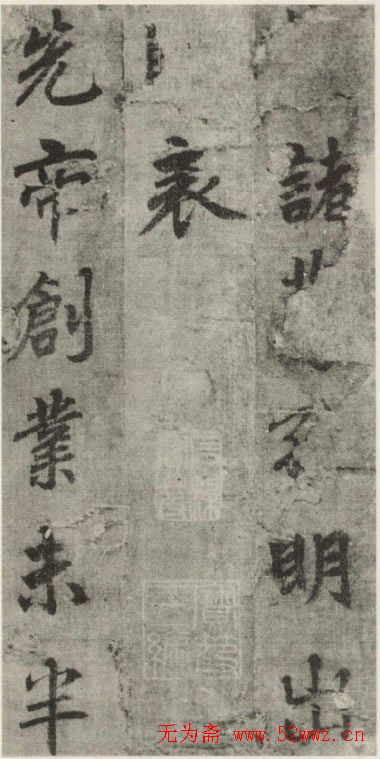 諸明出
表
先帝創業未半
无为斋 www.52wwz.cn